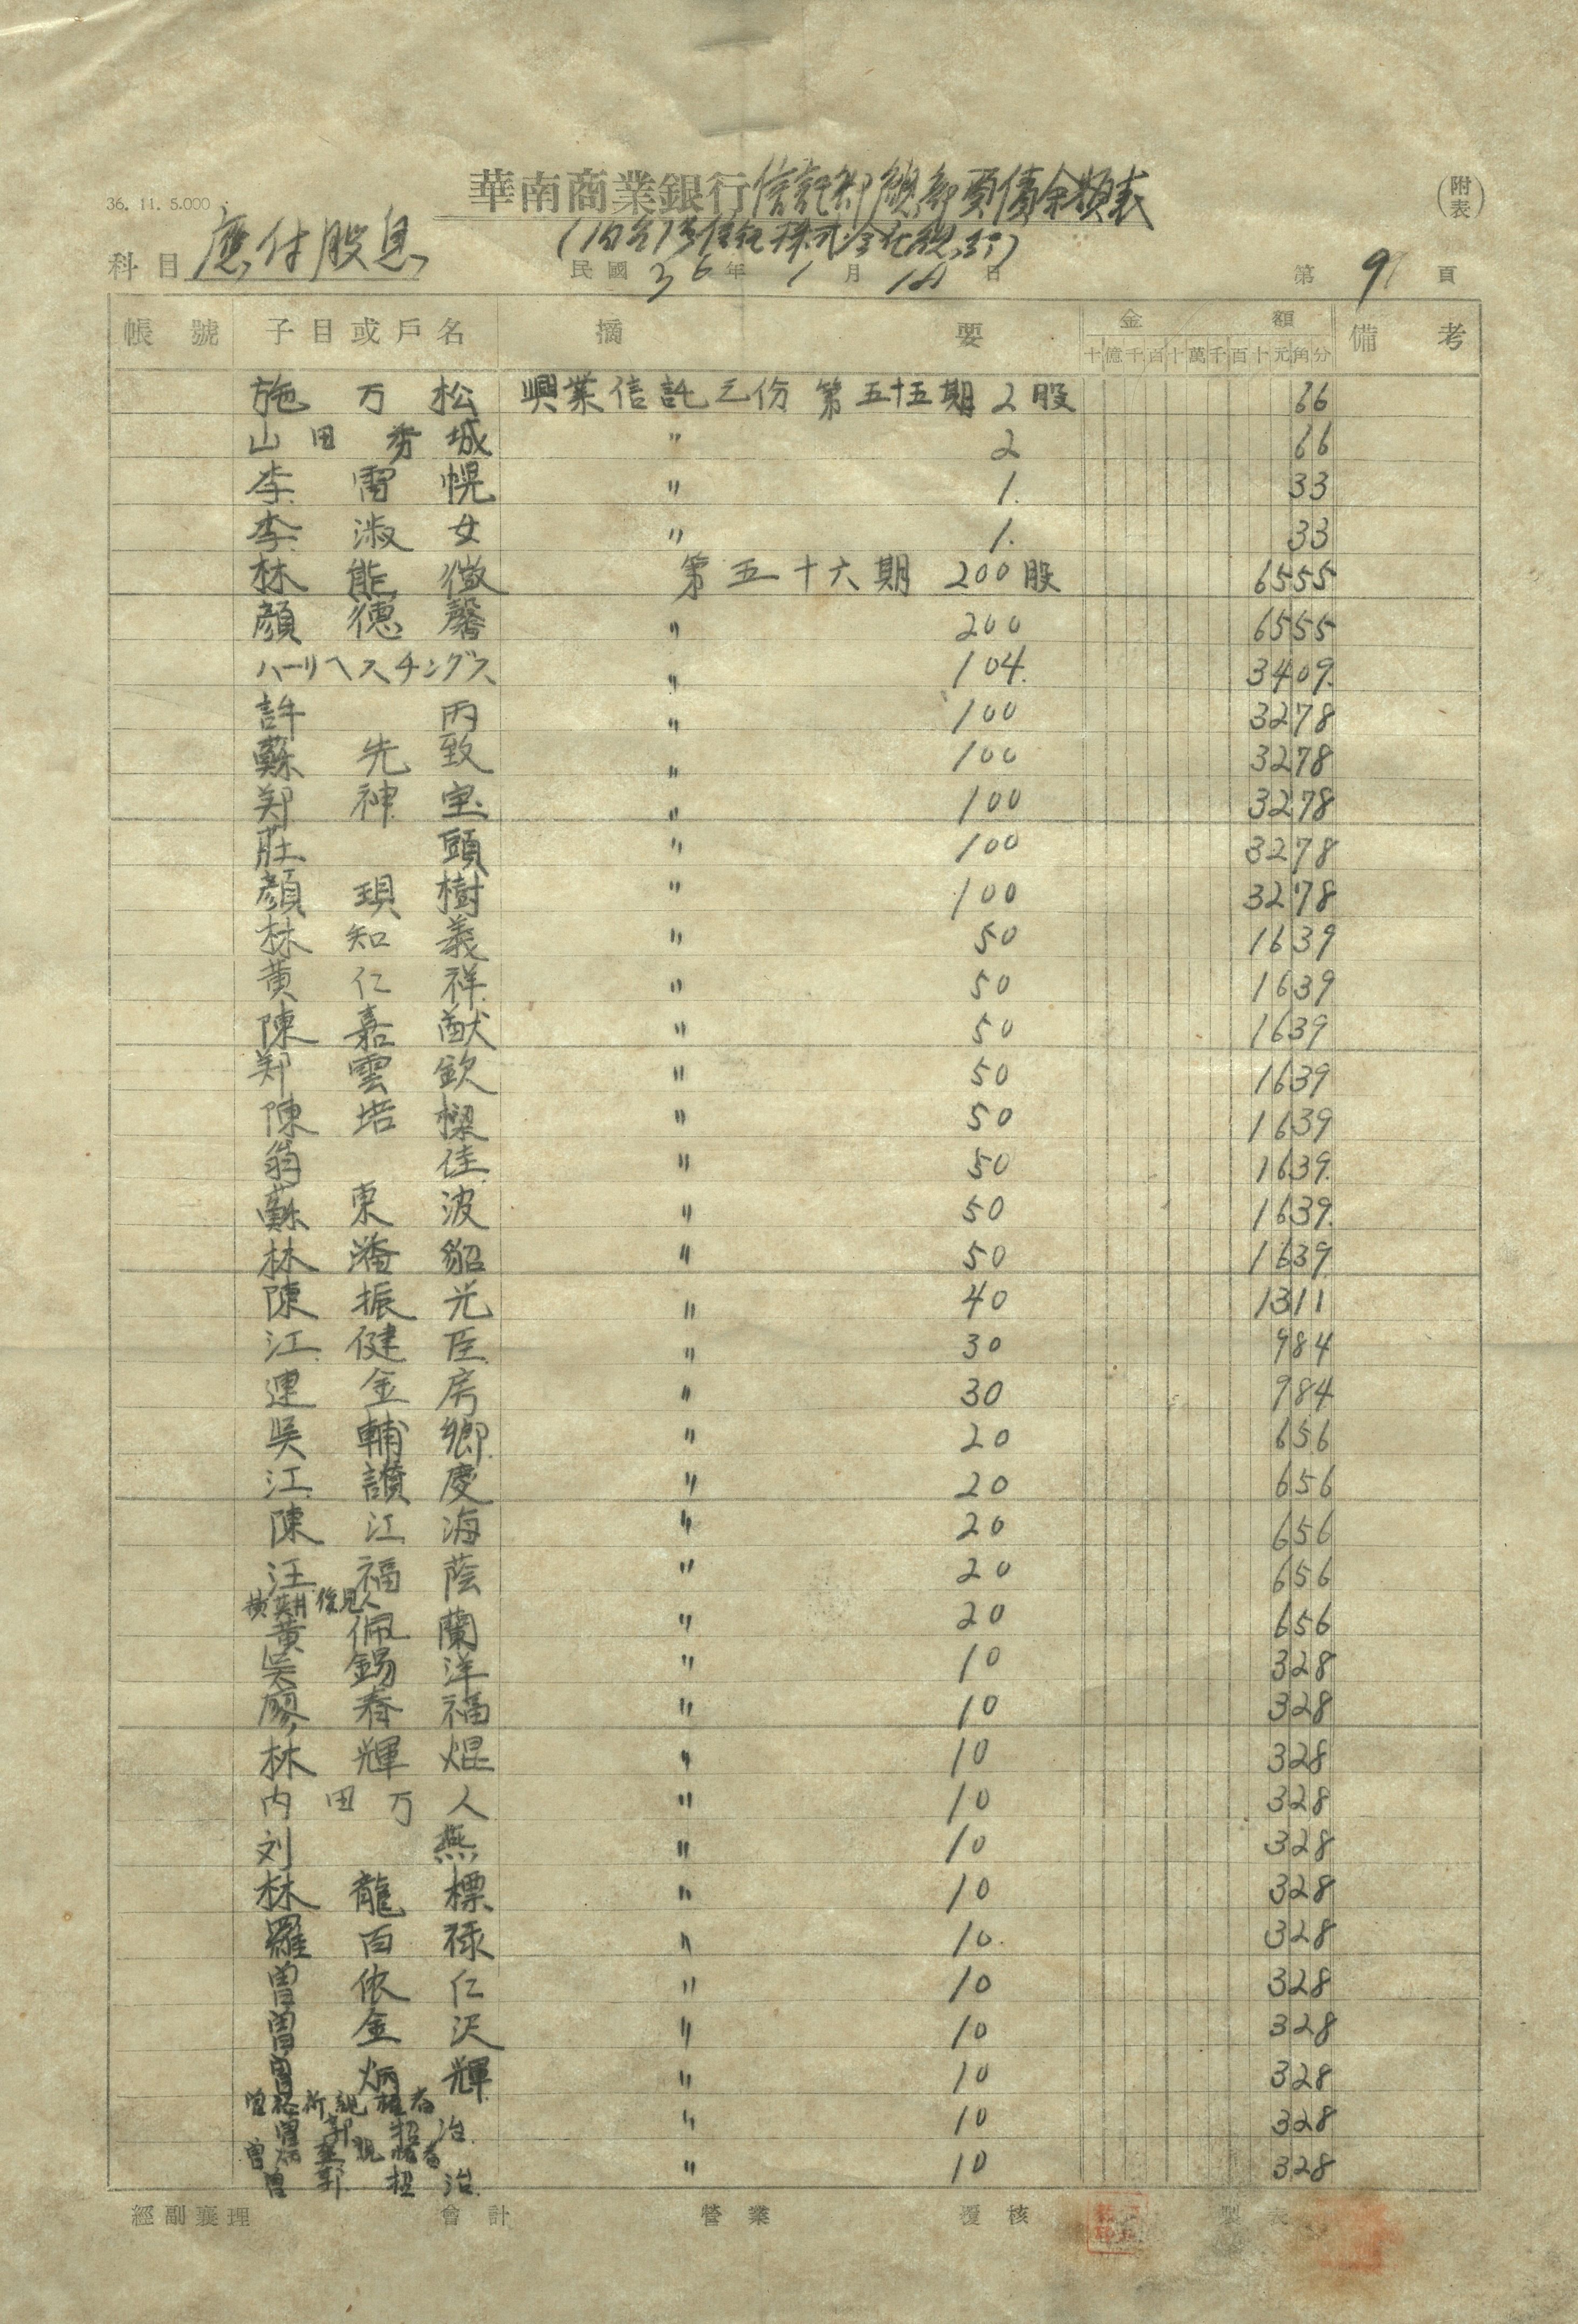 36. 11. 5.000
華南商業銀行信託部總部負債余額表
(附表)
科目 應付股息
民國36年1月18日
第9頁
帳號 子目或戶名 摘要 金額 備考
十億千百十萬千百十元角分
施万松 興業信託之份 第五十五期 2股 66
山田秀城 〃 2 66
李雷幌 〃 1. 33
李淑女 〃 1. 33
林熊徵 第五十六期 200股 6555
顔德馨 〃 200 6555
ハーリヘスチングス 〃 104. 3409.
許丙 〃 100 3278
蘇先致 〃 100 3278
郑神宝 〃 100 3278
莊頭 〃 100 3278
顔琪樹 〃 100 3278
林知義 〃 50 1639
黄仁祥 〃 50 1639
陳嘉猷 〃 50 1639
郑雲欽 〃 50 1639
陳培樑 〃 50 1639
翁佳 〃 50 1639.
蘇東波 〃 50 1639.
林 貂 〃 50 1639
陳振光 〃 40 1311
江健臣 〃 30 984
連金房 〃 30 984
吳輔卿 〃 20 656
江讚慶 〃 20 656
陳江海 〃 20 656
汪福蔭 〃 20 656
後見人
黄佩蘭 〃 20 656
吴錫洋 〃 10 328
廖春福 〃 10 328
林輝焜 〃 10 328
内田万人 〃 10 328
刘燕 〃 10 328
林龍標 〃 10 328
羅百禄 〃 10. 328
曾依仁 〃 10 328
曾金沢 〃 10 328
曾炳輝 〃 10 328
親権者
曾郭招治. 〃 10 328
親権者
曾郭招治. 〃 10 328
經副襄理 會計 營業 覆核 製表